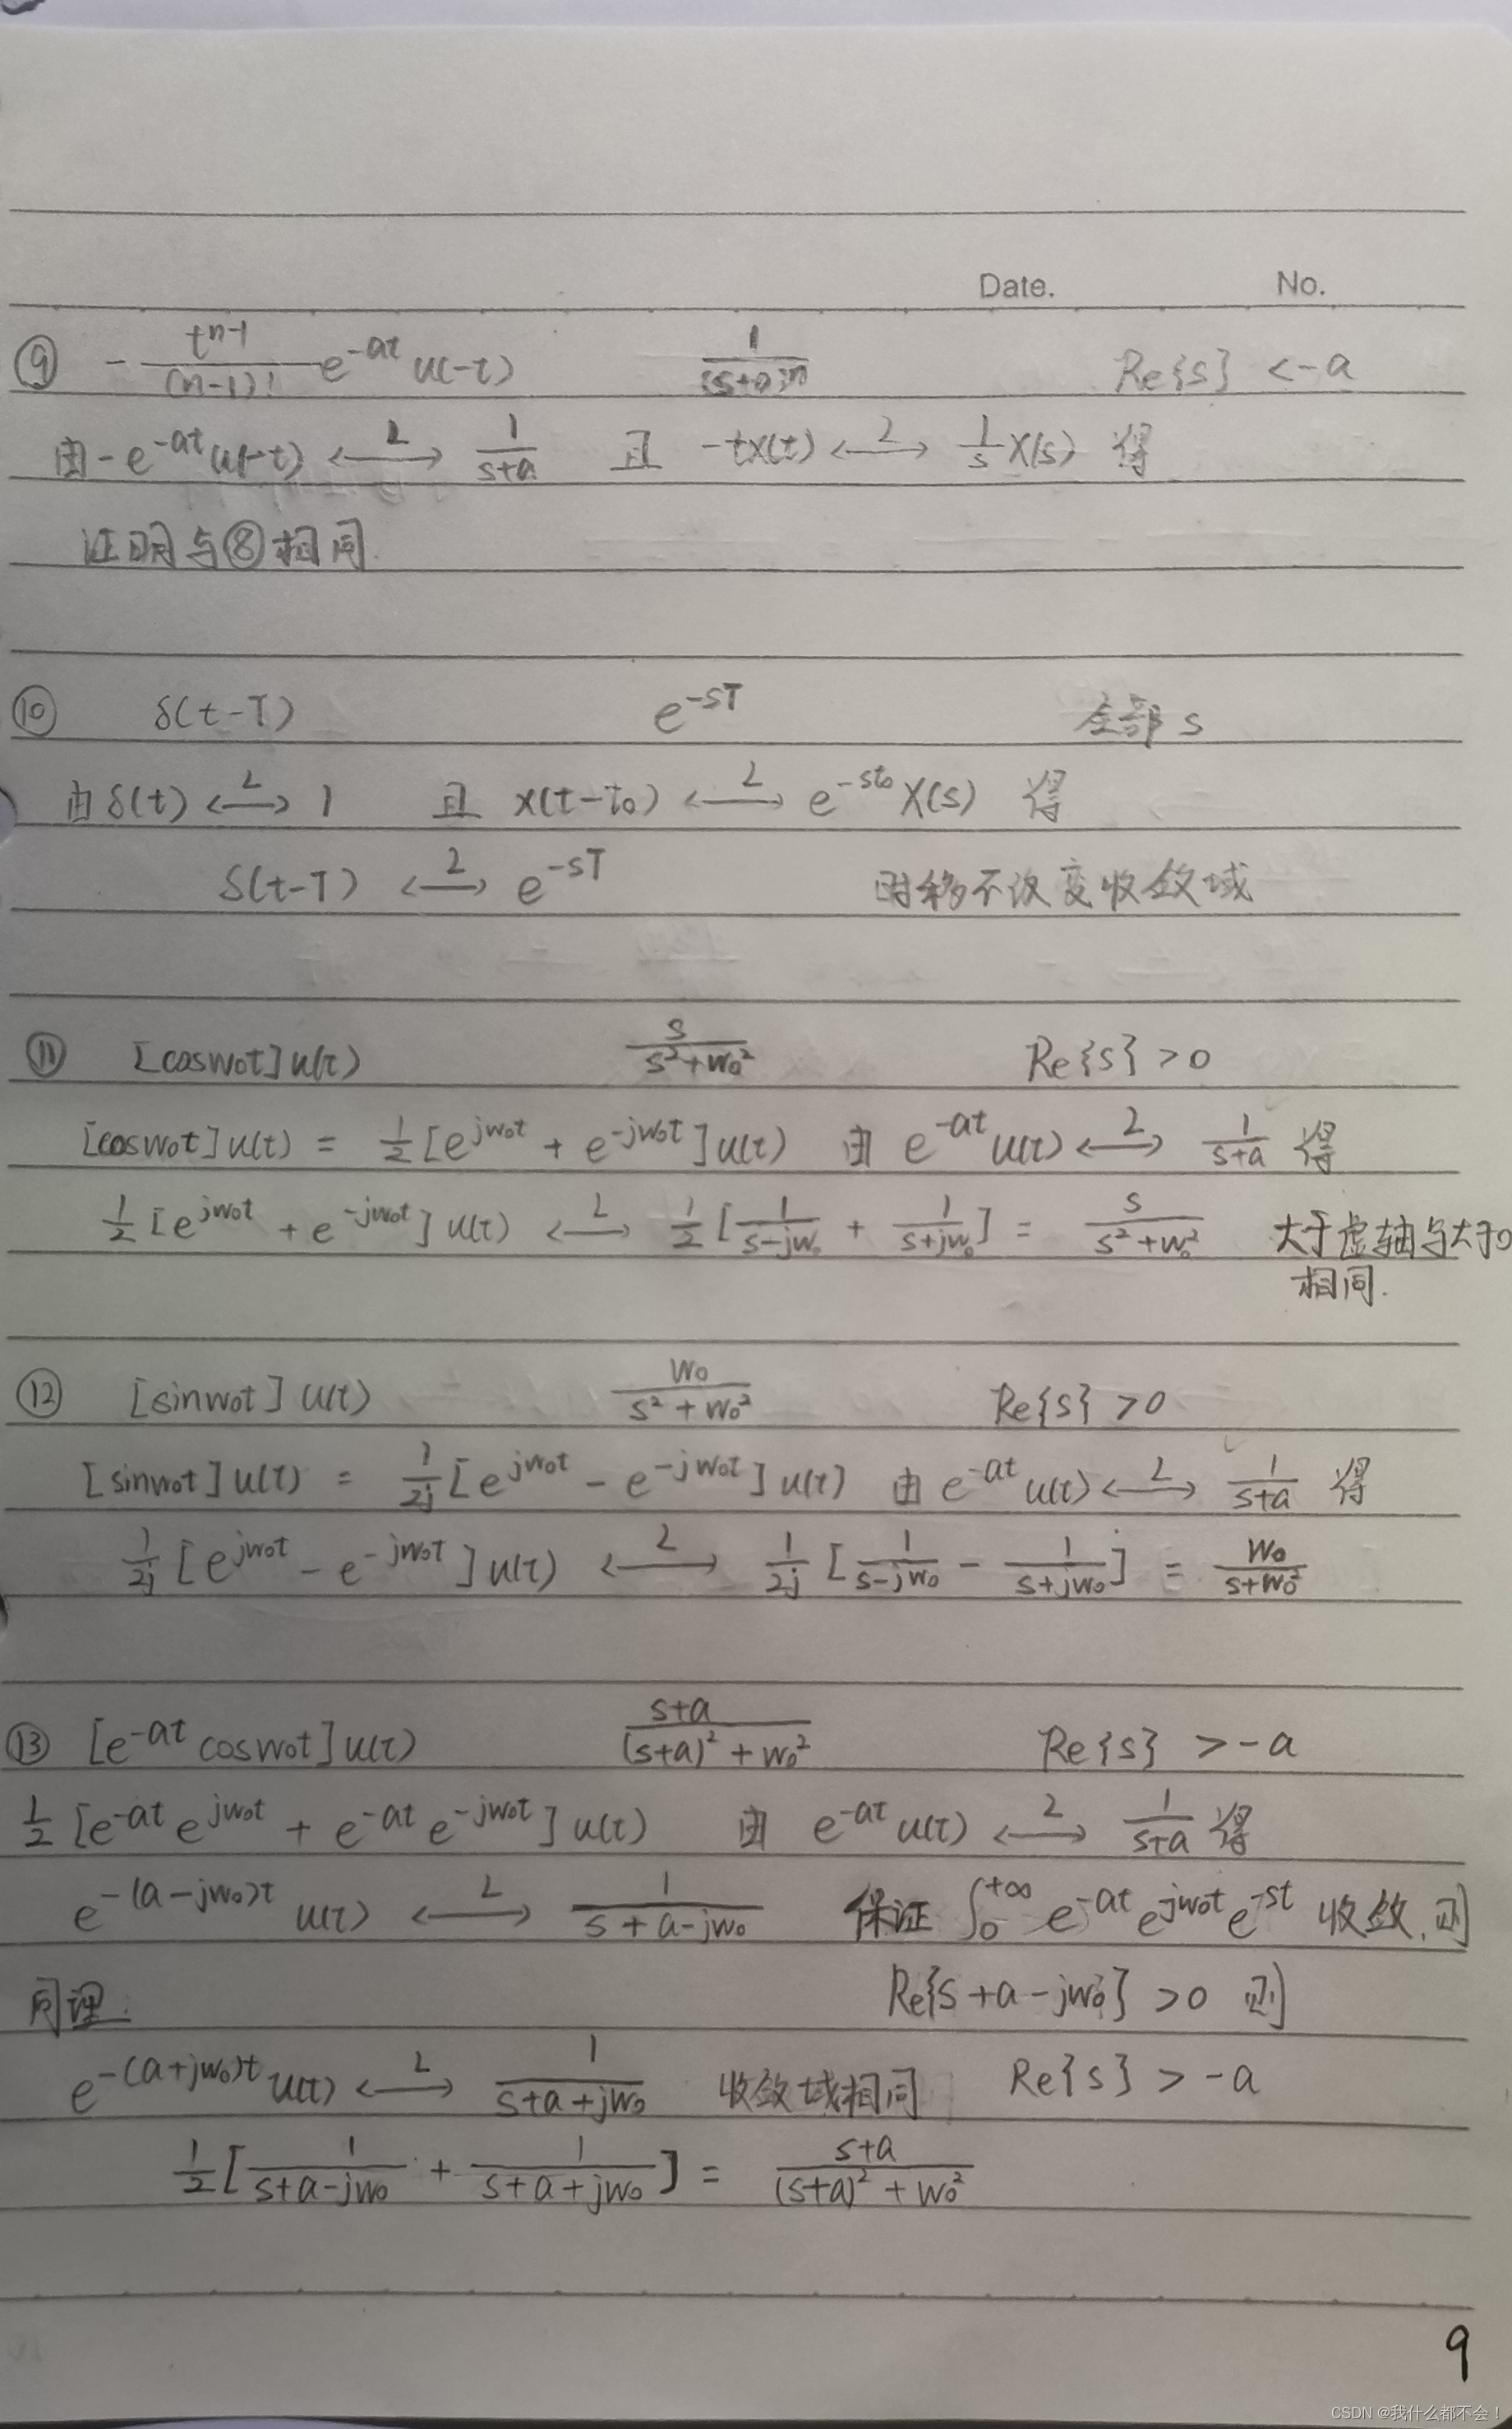 Date. No.
⑨ -\frac{t^{n-1}}{(n-1)!}e^{-at}u(-t) \frac{1}{(s+a)^n} Re{s} <-a
由-e^{-at}u(-t) \overset{L}{\longleftrightarrow} \frac{1}{s+a} 且 -tx(t) \overset{L}{\longleftrightarrow} \frac{1}{s}X(s) 得
证明与⑧相同.
⑩ δ(t-T) e^{-sT} 全部 s
由δ(t) \overset{L}{\longleftrightarrow} 1 且 x(t-t₀) \overset{L}{\longleftrightarrow} e^{-st₀}X(s) 得
δ(t-T) \overset{L}{\longleftrightarrow} e^{-sT} 时移不改变收敛域
⑪ [cosw₀t]u(t) \frac{s}{s²+w₀²} Re{s} >0
[cosw₀t]u(t) = \frac{1}{2}[e^{jw₀t} + e^{-jw₀t}]u(t) 由 e^{-at}u(t) \overset{L}{\longleftrightarrow} \frac{1}{s+a} 得
\frac{1}{2}[e^{jw₀t} + e^{-jw₀t}]u(t) \overset{L}{\longleftrightarrow} \frac{1}{2}[\frac{1}{s-jw₀} + \frac{1}{s+jw₀}] = \frac{s}{s²+w₀²} 大于虚轴与大于0
相同.
⑫ [sinw₀t]u(t) \frac{w₀}{s²+w₀²} Re{s} >0
[sinw₀t]u(t) = \frac{1}{2j}[e^{jw₀t} - e^{-jw₀t}]u(t) 由 e^{-at}u(t) \overset{L}{\longleftrightarrow} \frac{1}{s+a} 得
\frac{1}{2j}[e^{jw₀t} - e^{-jw₀t}]u(t) \overset{L}{\longleftrightarrow} \frac{1}{2j}[\frac{1}{s-jw₀} - \frac{1}{s+jw₀}] = \frac{w₀}{s+w₀²}
⑬ [e^{-at}cosw₀t]u(t) \frac{s+a}{(s+a)²+w₀²} Re{s} >-a
\frac{1}{2}[e^{-at}e^{jw₀t} + e^{-at}e^{-jw₀t}]u(t) 由 e^{-at}u(t) \overset{L}{\longleftrightarrow} \frac{1}{s+a} 得
e^{-(a-jw₀)t}u(t) \overset{L}{\longleftrightarrow} \frac{1}{s+a-jw₀} 保证 \int_{0}^{+∞} e^{-at}e^{jw₀t}e^{-st} 收敛,则
Re{s+a-jw₀} >0 则
同理:
e^{-(a+jw₀)t}u(t) \overset{L}{\longleftrightarrow} \frac{1}{s+a+jw₀} 收敛域相同 Re{s} >-a
\frac{1}{2}[\frac{1}{s+a-jw₀} + \frac{1}{s+a+jw₀}] = \frac{s+a}{(s+a)²+w₀²}
9
CSDN @我什么都不会！